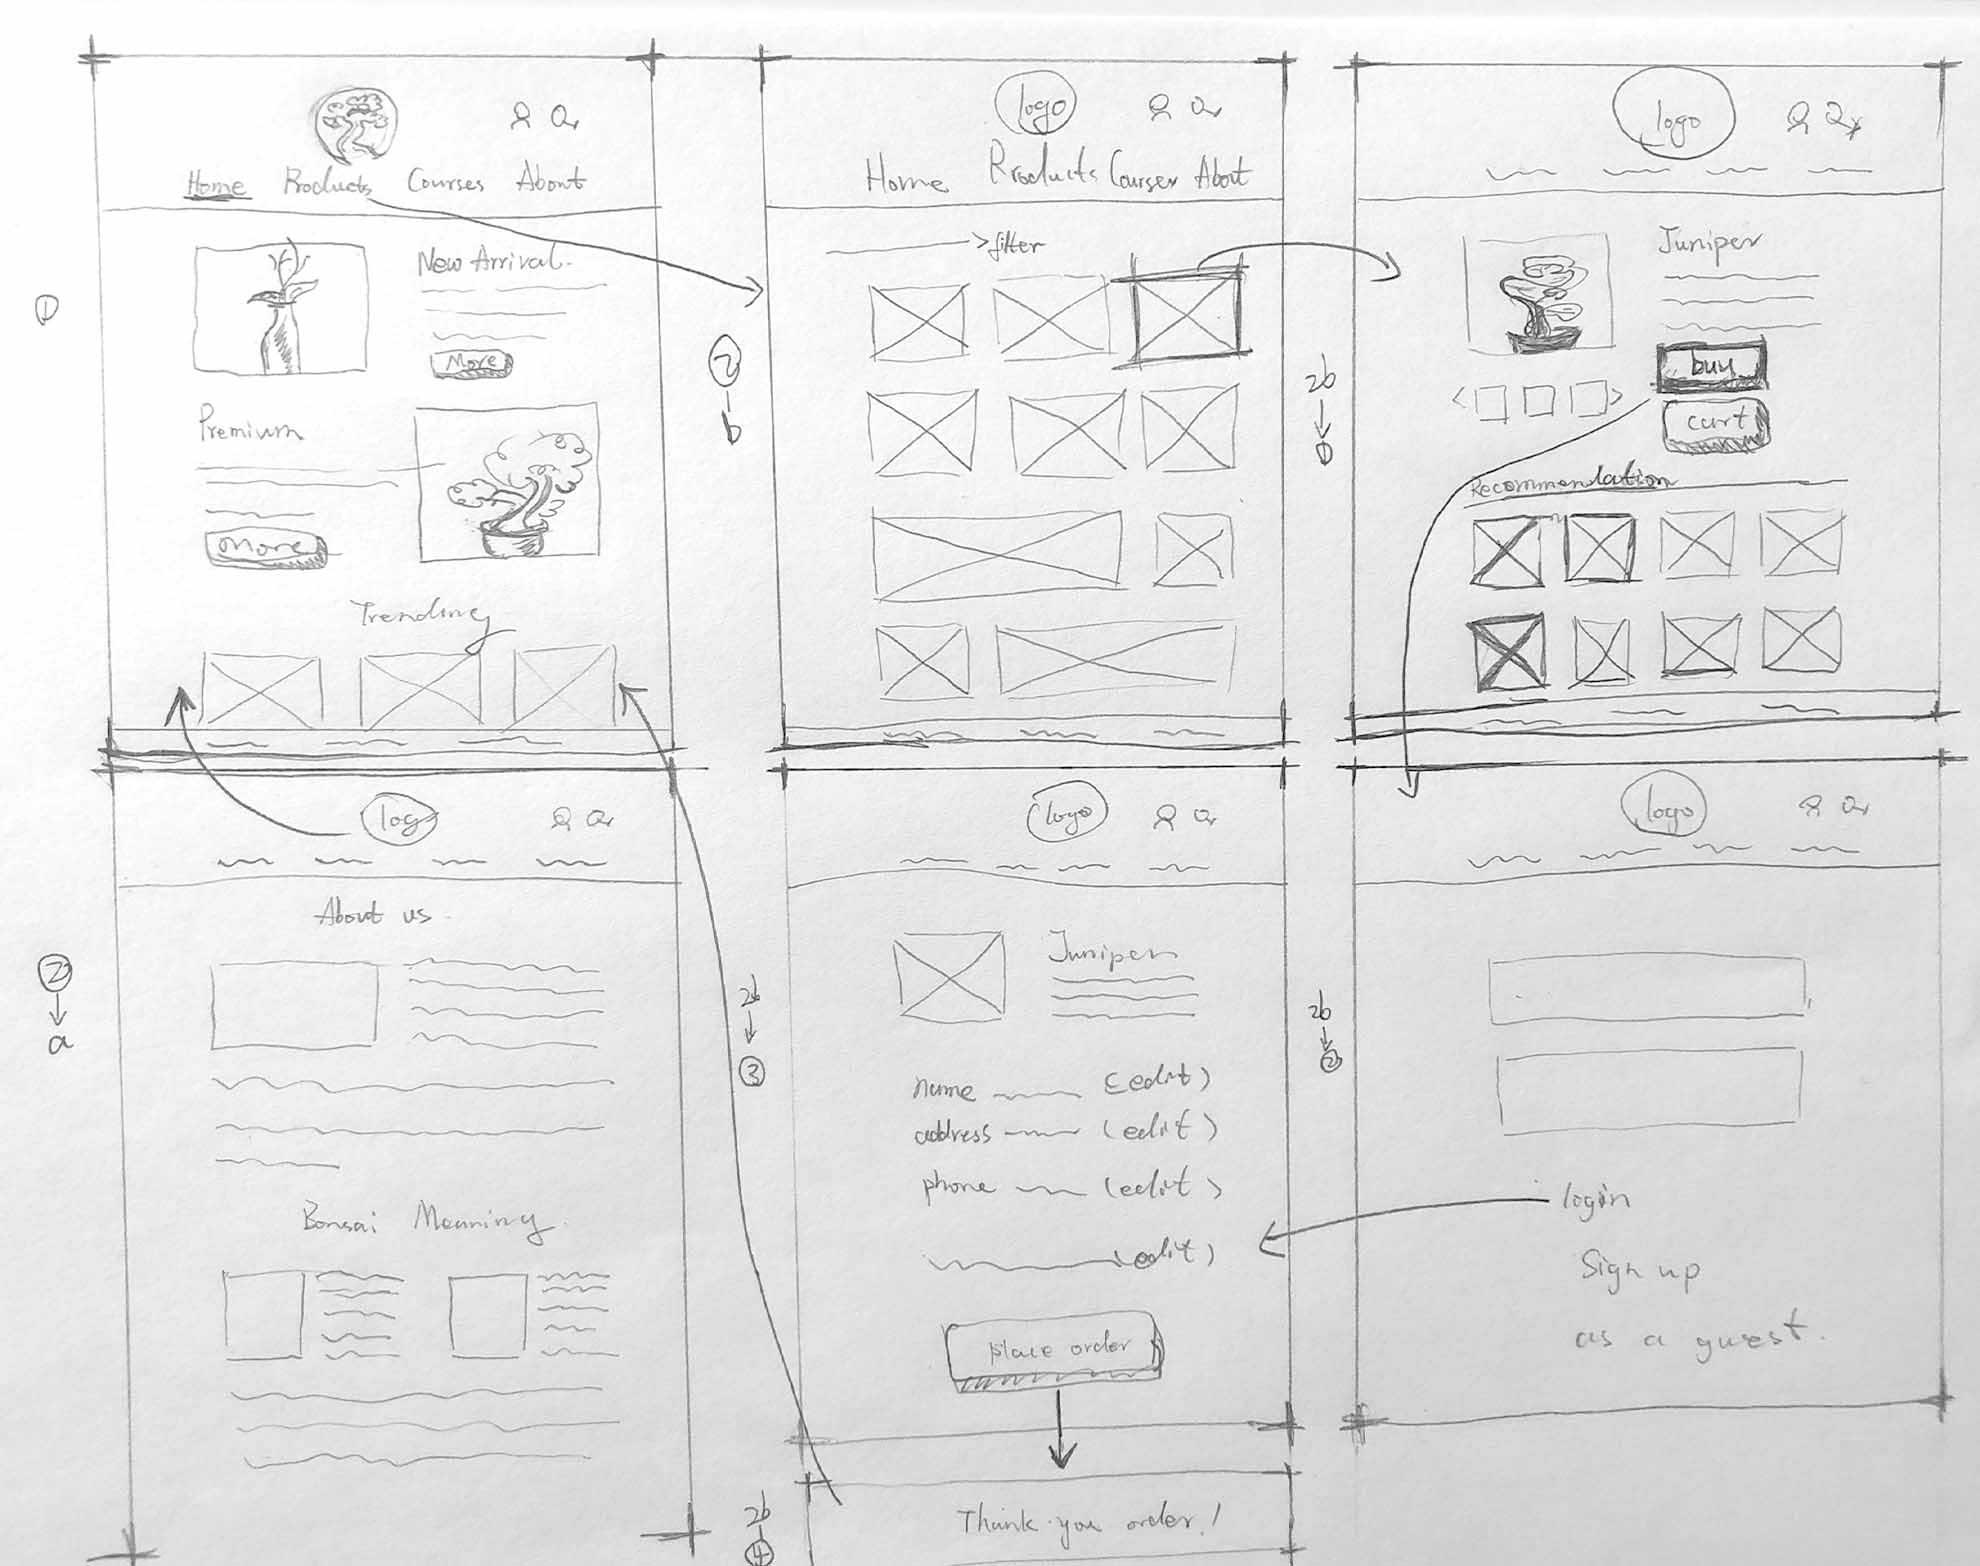 Home Products Courses About
New Arrival.
More
Premium
More
Trending
1
logo
Home Products Courses About
>filter
2
b
logo
Juniper
buy
cart
Recommendation
2b
1
logo
About us.
Bonsai Meaning.
2
a
logo
Juniper
name (edit)
address (edit)
phone (edit)
(edit)
place order
2b
3
logo
login
Sign up
as a guest.
2b
2
Thank you order!
2b
4